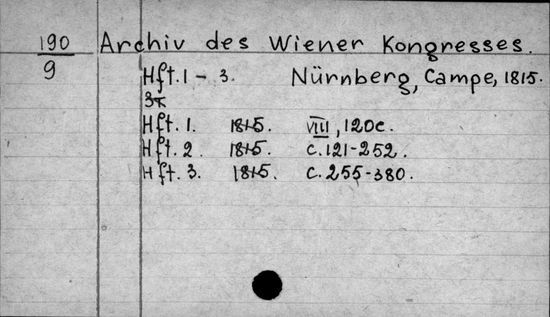 190 Archiv des Wiener Kongresses.
9 Hft. 1 - 3. Nürnberg, Campe, 1815.
Hft. 1. 1815. VIII, 120c.
Hft. 2. 1815. c. 121-252.
Hft. 3. 1815. c. 255-380.